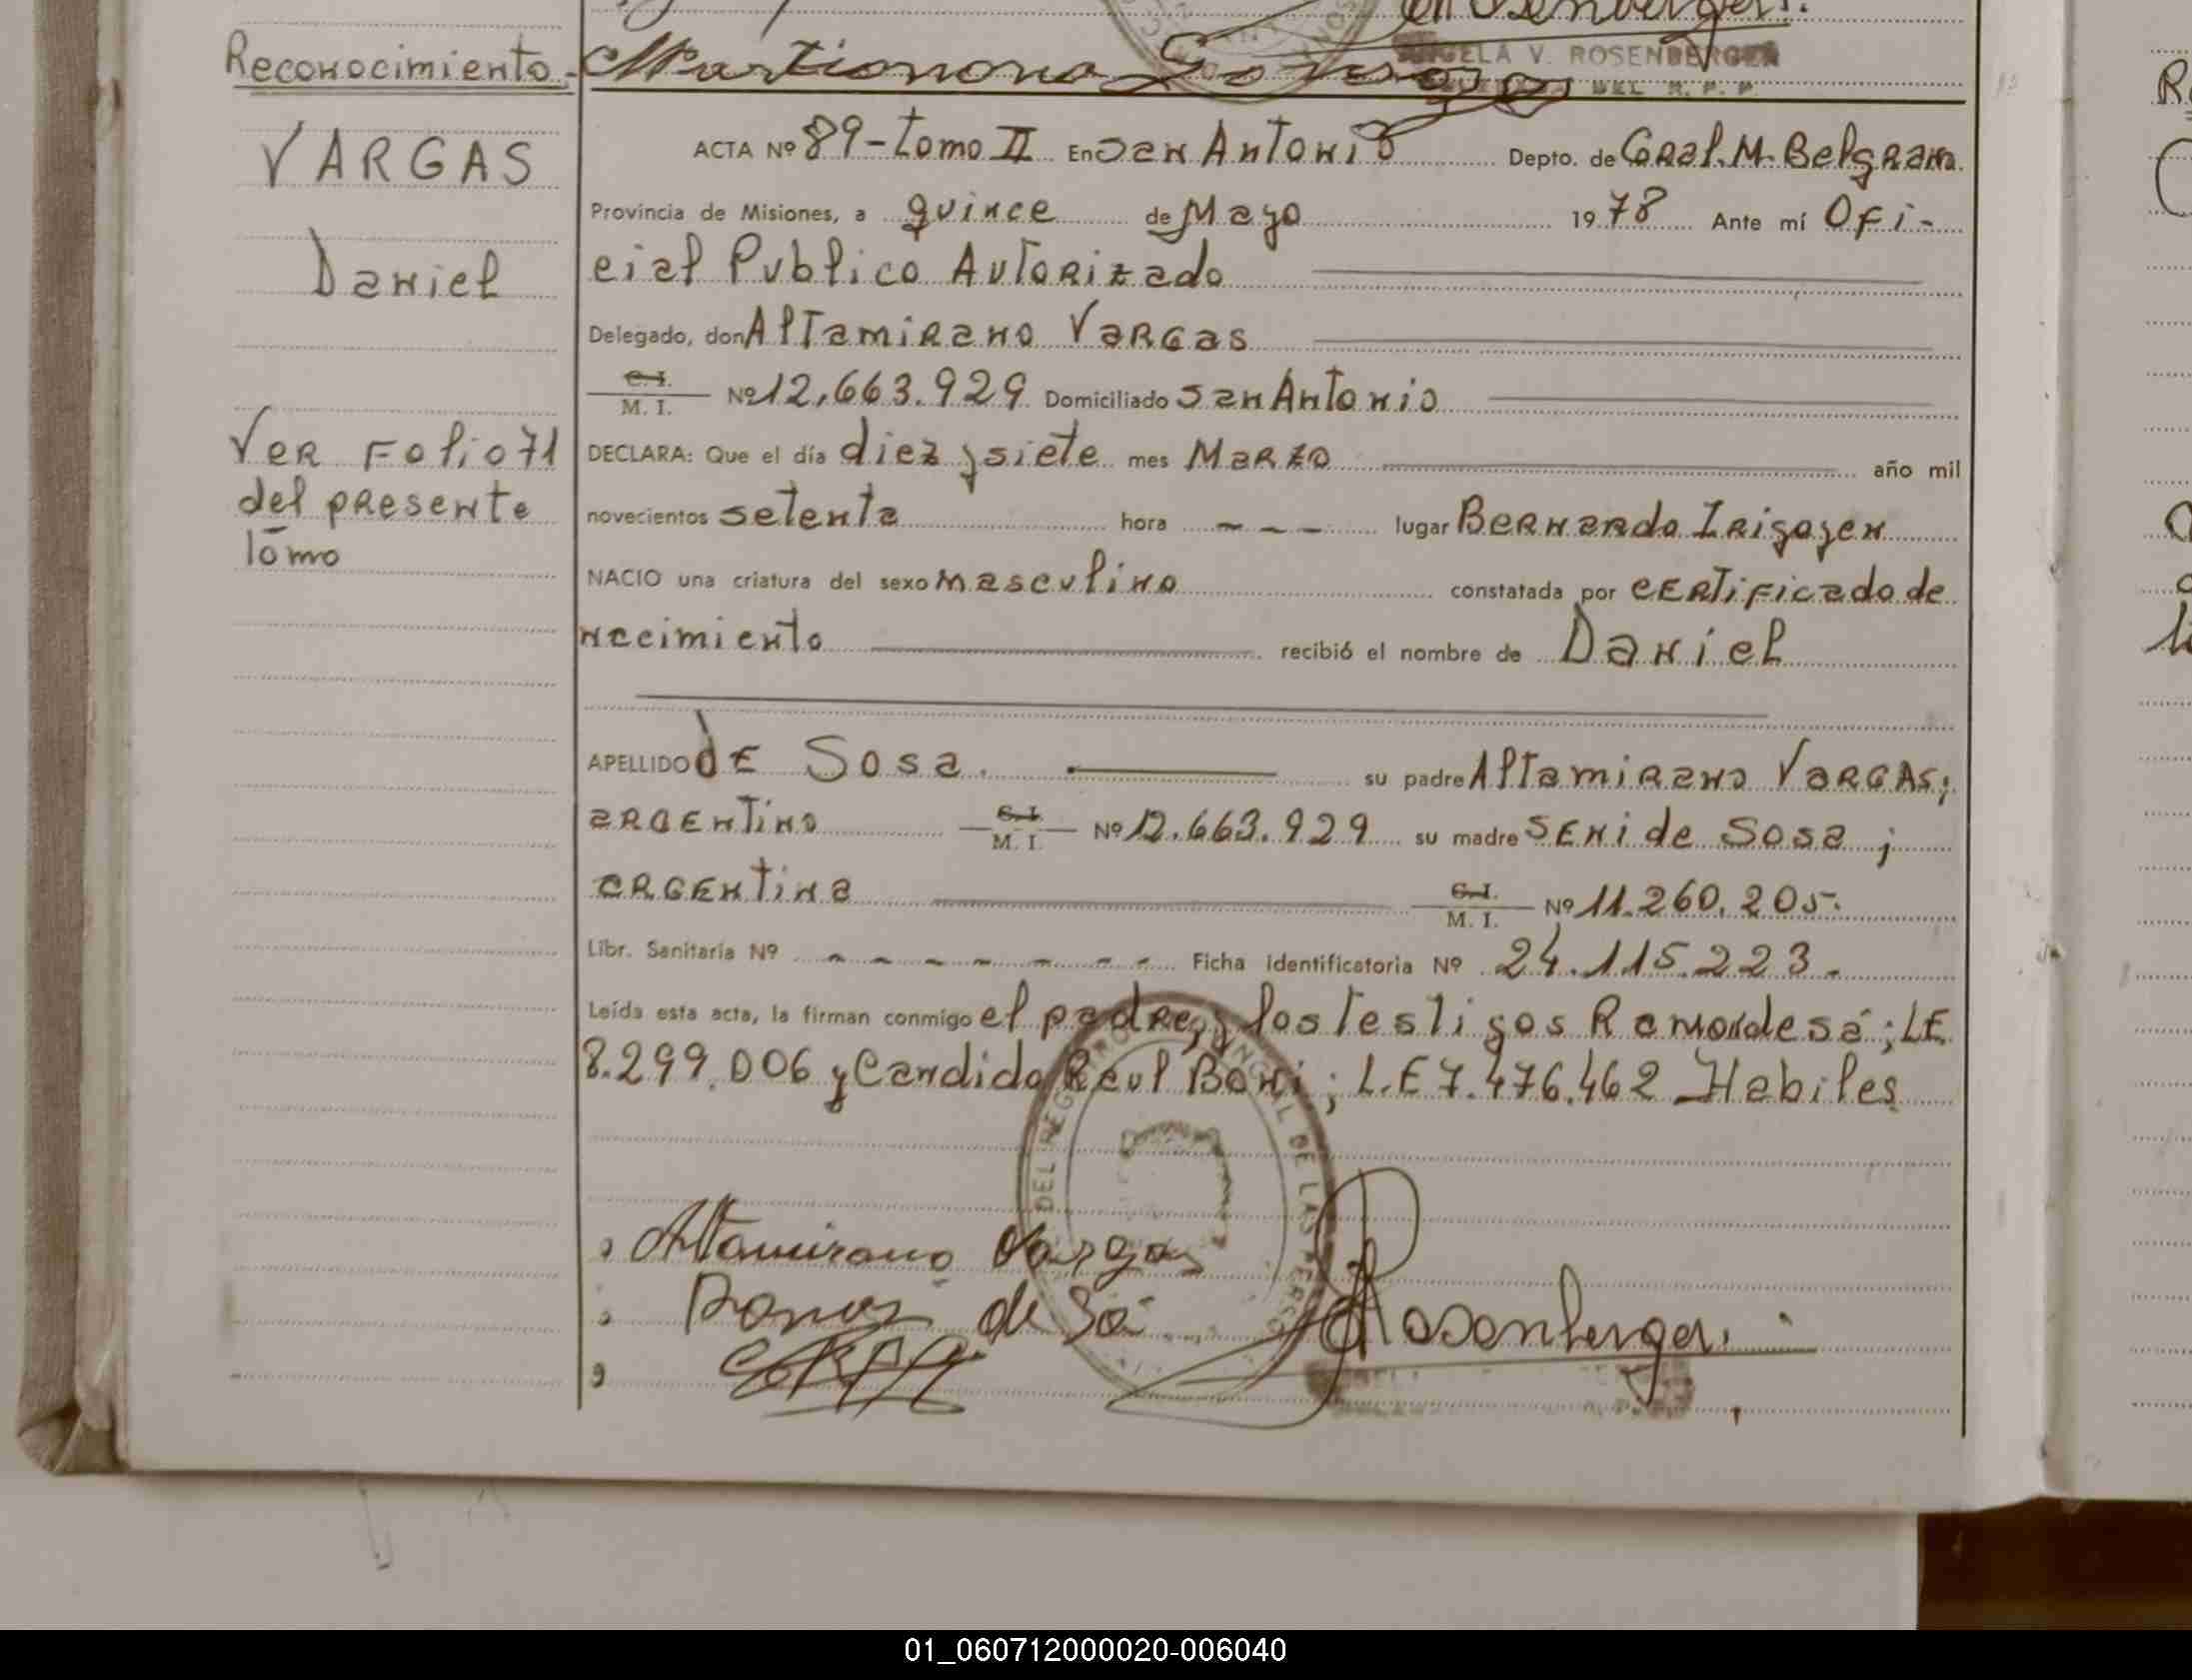 Rosenberger.
Reconocimiento.
ANGELA V. ROSENBERGER
DEL R. P. P.
VARGAS
Daniel
Ver Folio 71
del presente
Tomo
ACTA Nº 89-Tomo II En San Antonio Depto. de Gral. M. Belgrano.
Provincia de Misiones, a quince de Mayo 1978 Ante mí Ofi-
cial Publico Autorizado
Delegado, don Altamirano Vargas
C. I.
M. I. Nº 12.663.929 Domiciliado San Antonio
DECLARA: Que el día diez y siete mes Marzo año mil
novecientos setenta hora - - - lugar Bernardo Irigoyen
NACIO una criatura del sexo masculino constatada por certificado de
nacimiento recibió el nombre de Daniel
APELLIDO dE Sosa. su padre Altamirano Vargas;
argentino C. I. M. I. Nº 12.663.929 su madre Seni de Sosa;
argentina C. I. M. I. Nº 11.260.205.
Libr. Sanitaria Nº - - - - - - - Ficha Identificatoria Nº 24.115.223.
Leída esta acta, la firman conmigo el padre, y los testigos Ramon de sá; LE
8.299.006 y Candido Raul Boni; L.E 7.476.462 Habiles
DEL REGISTRO DE LAS PERSO
Altamirano Vargas
Ramon de Sá
Rosenberger.
01_060712000020-006040